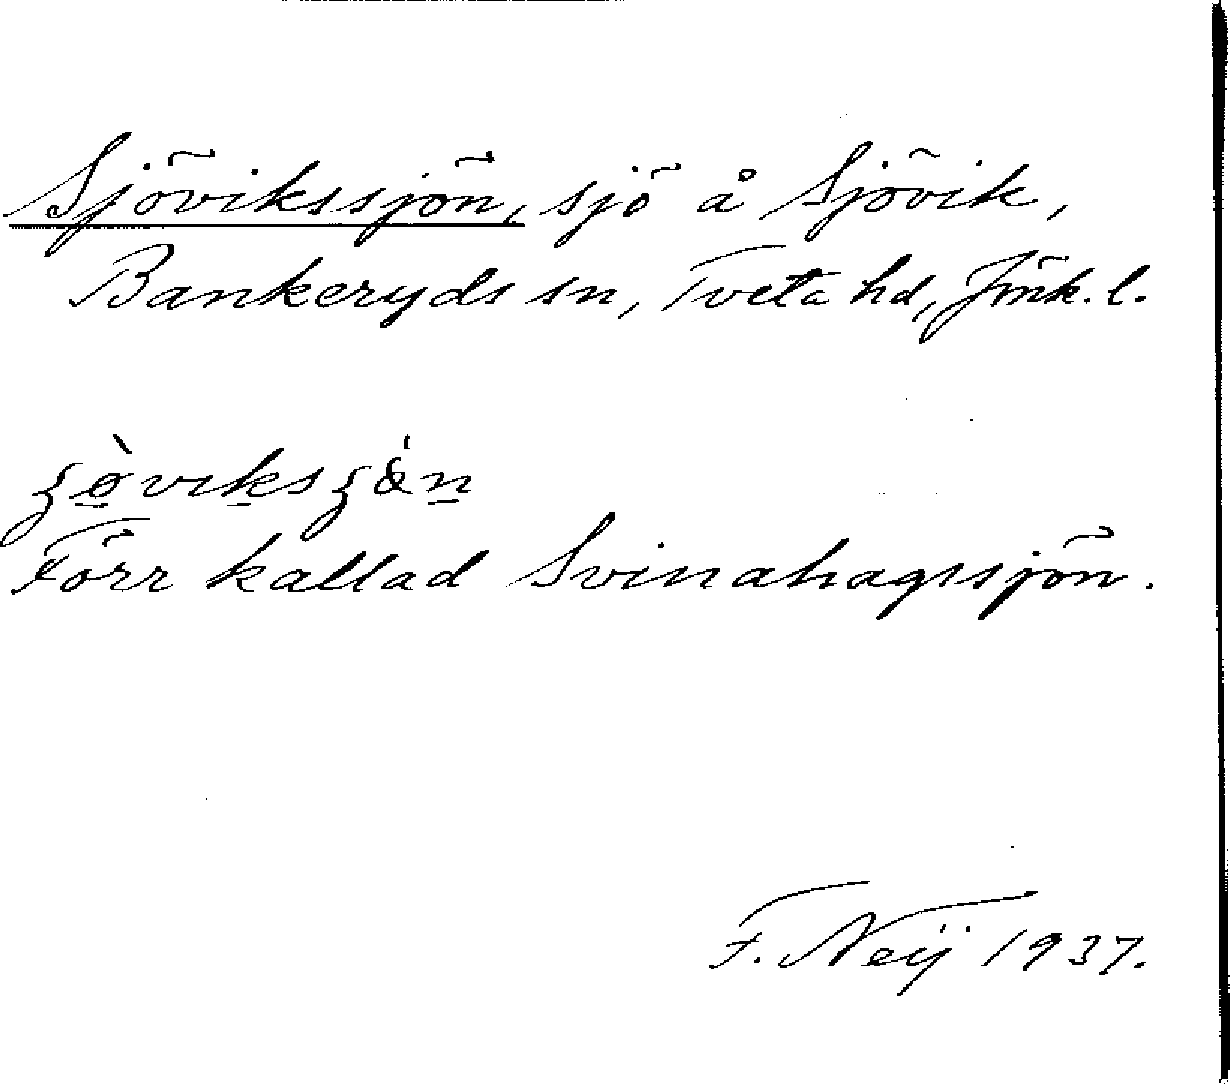 Sjövikssjön, sjö å Sjövik,
Bankeryds sn, Tveta hd, Jönk. l.
Förr kallad Svinahagssjön.
F. Neij 1937.